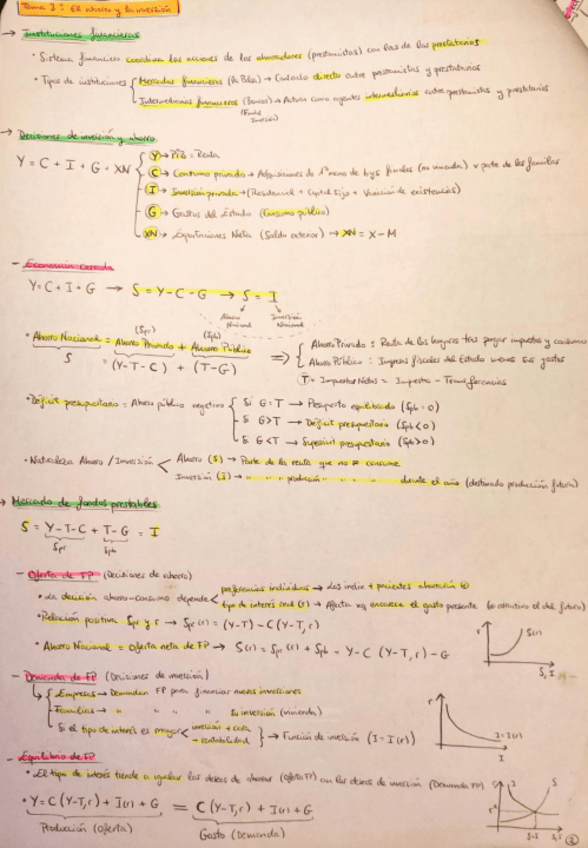 Tema 3: El ahorro y la inversión
→ Instituciones financieras
· Sistema financiero coordina las acciones de los ahorradores (prestamistas) con las de los prestatarios
· Tipos de instituciones { Mercados financieros (la Bolsa) → Contacto directo entre prestamistas y prestatarios
Intermediarios financieros (Bancos) → Actúan como agentes intermediarios entre prestamistas y prestatarios
(Fondos Inversión)
→ Decisiones de inversión y ahorro
Y = C + I + G + XN { Y → PIB = Renta
C → Consumo privado → Adquisiciones de bys finales (no vivienda) x parte de las familias
I → Inversión privada → (Residencial + Capital fijo + Variación de existencias)
G → Gastos del Estado (Consumo público)
XN → Exportaciones Netas (Saldo exterior) → XN = X - M
- Economía cerrada
Y = C + I + G → S = Y - C - G → S = I
Ahorro Nacional Inversión Nacional
(Spr) (Spb)
· Ahorro Nacional = Ahorro Privado + Ahorro Público ⇒ { Ahorro Privado = Renta de los hogares tras pagar impuestos y consumo
S = (Y - T - C) + (T - G) Ahorro Público : Ingresos fiscales del Estado menos sus gastos
T = Impuestos Netos = Impuestos - Transferencias
· Déficit presupuestario = Ahorro público negativo { Si G = T → Presupuesto equilibrado (Spb = 0)
Si G > T → Déficit presupuestario (Spb < 0)
Si G < T → Superávit presupuestario (Spb > 0)
· Naturaleza Ahorro / Inversión < Ahorro (S) → Parte de la renta que no se consume
Inversión (I) → " " " producción " " " " durante el año (destinado producción futura)
→ Mercado de fondos prestables
S = Y - T - C + T - G = I
Spr Spb
- Oferta de FP (Decisiones de ahorro)
· La decisión ahorro-consumo depende < preferencias individuos → Los indiv + pacientes ahorrarán
tipo de interés real (r) → Afecta xq encarece el gasto presente
· Relación positiva Spr y r → Spr (r) = (Y - T) - C (Y - T, r)
· Ahorro Nacional = Oferta neta de FP → S(r) = Spr (r) + Spb = Y - C (Y - T, r) - G
r S(r)
S, I
- Demanda de FP (Decisiones de inversión)
{ Empresas → Demandan FP para financiar nuevas inversiones
- Familias → " " " " su inversión (vivienda)
- Si el tipo de interés es mayor < inversión + cara
- rentabilidad } → Función de inversión (I = I(r))
r I = I(r)
I
- Equilibrio de FP
· El tipo de interés tiende a igualar los deseos de ahorrar (oferta FP) con los deseos de inversión (Demanda FP)
· Y = C (Y - T, r) + I(r) + G = C (Y - T, r) + I(r) + G
Producción (Oferta) Gasto (Demanda)
S
S, I
2